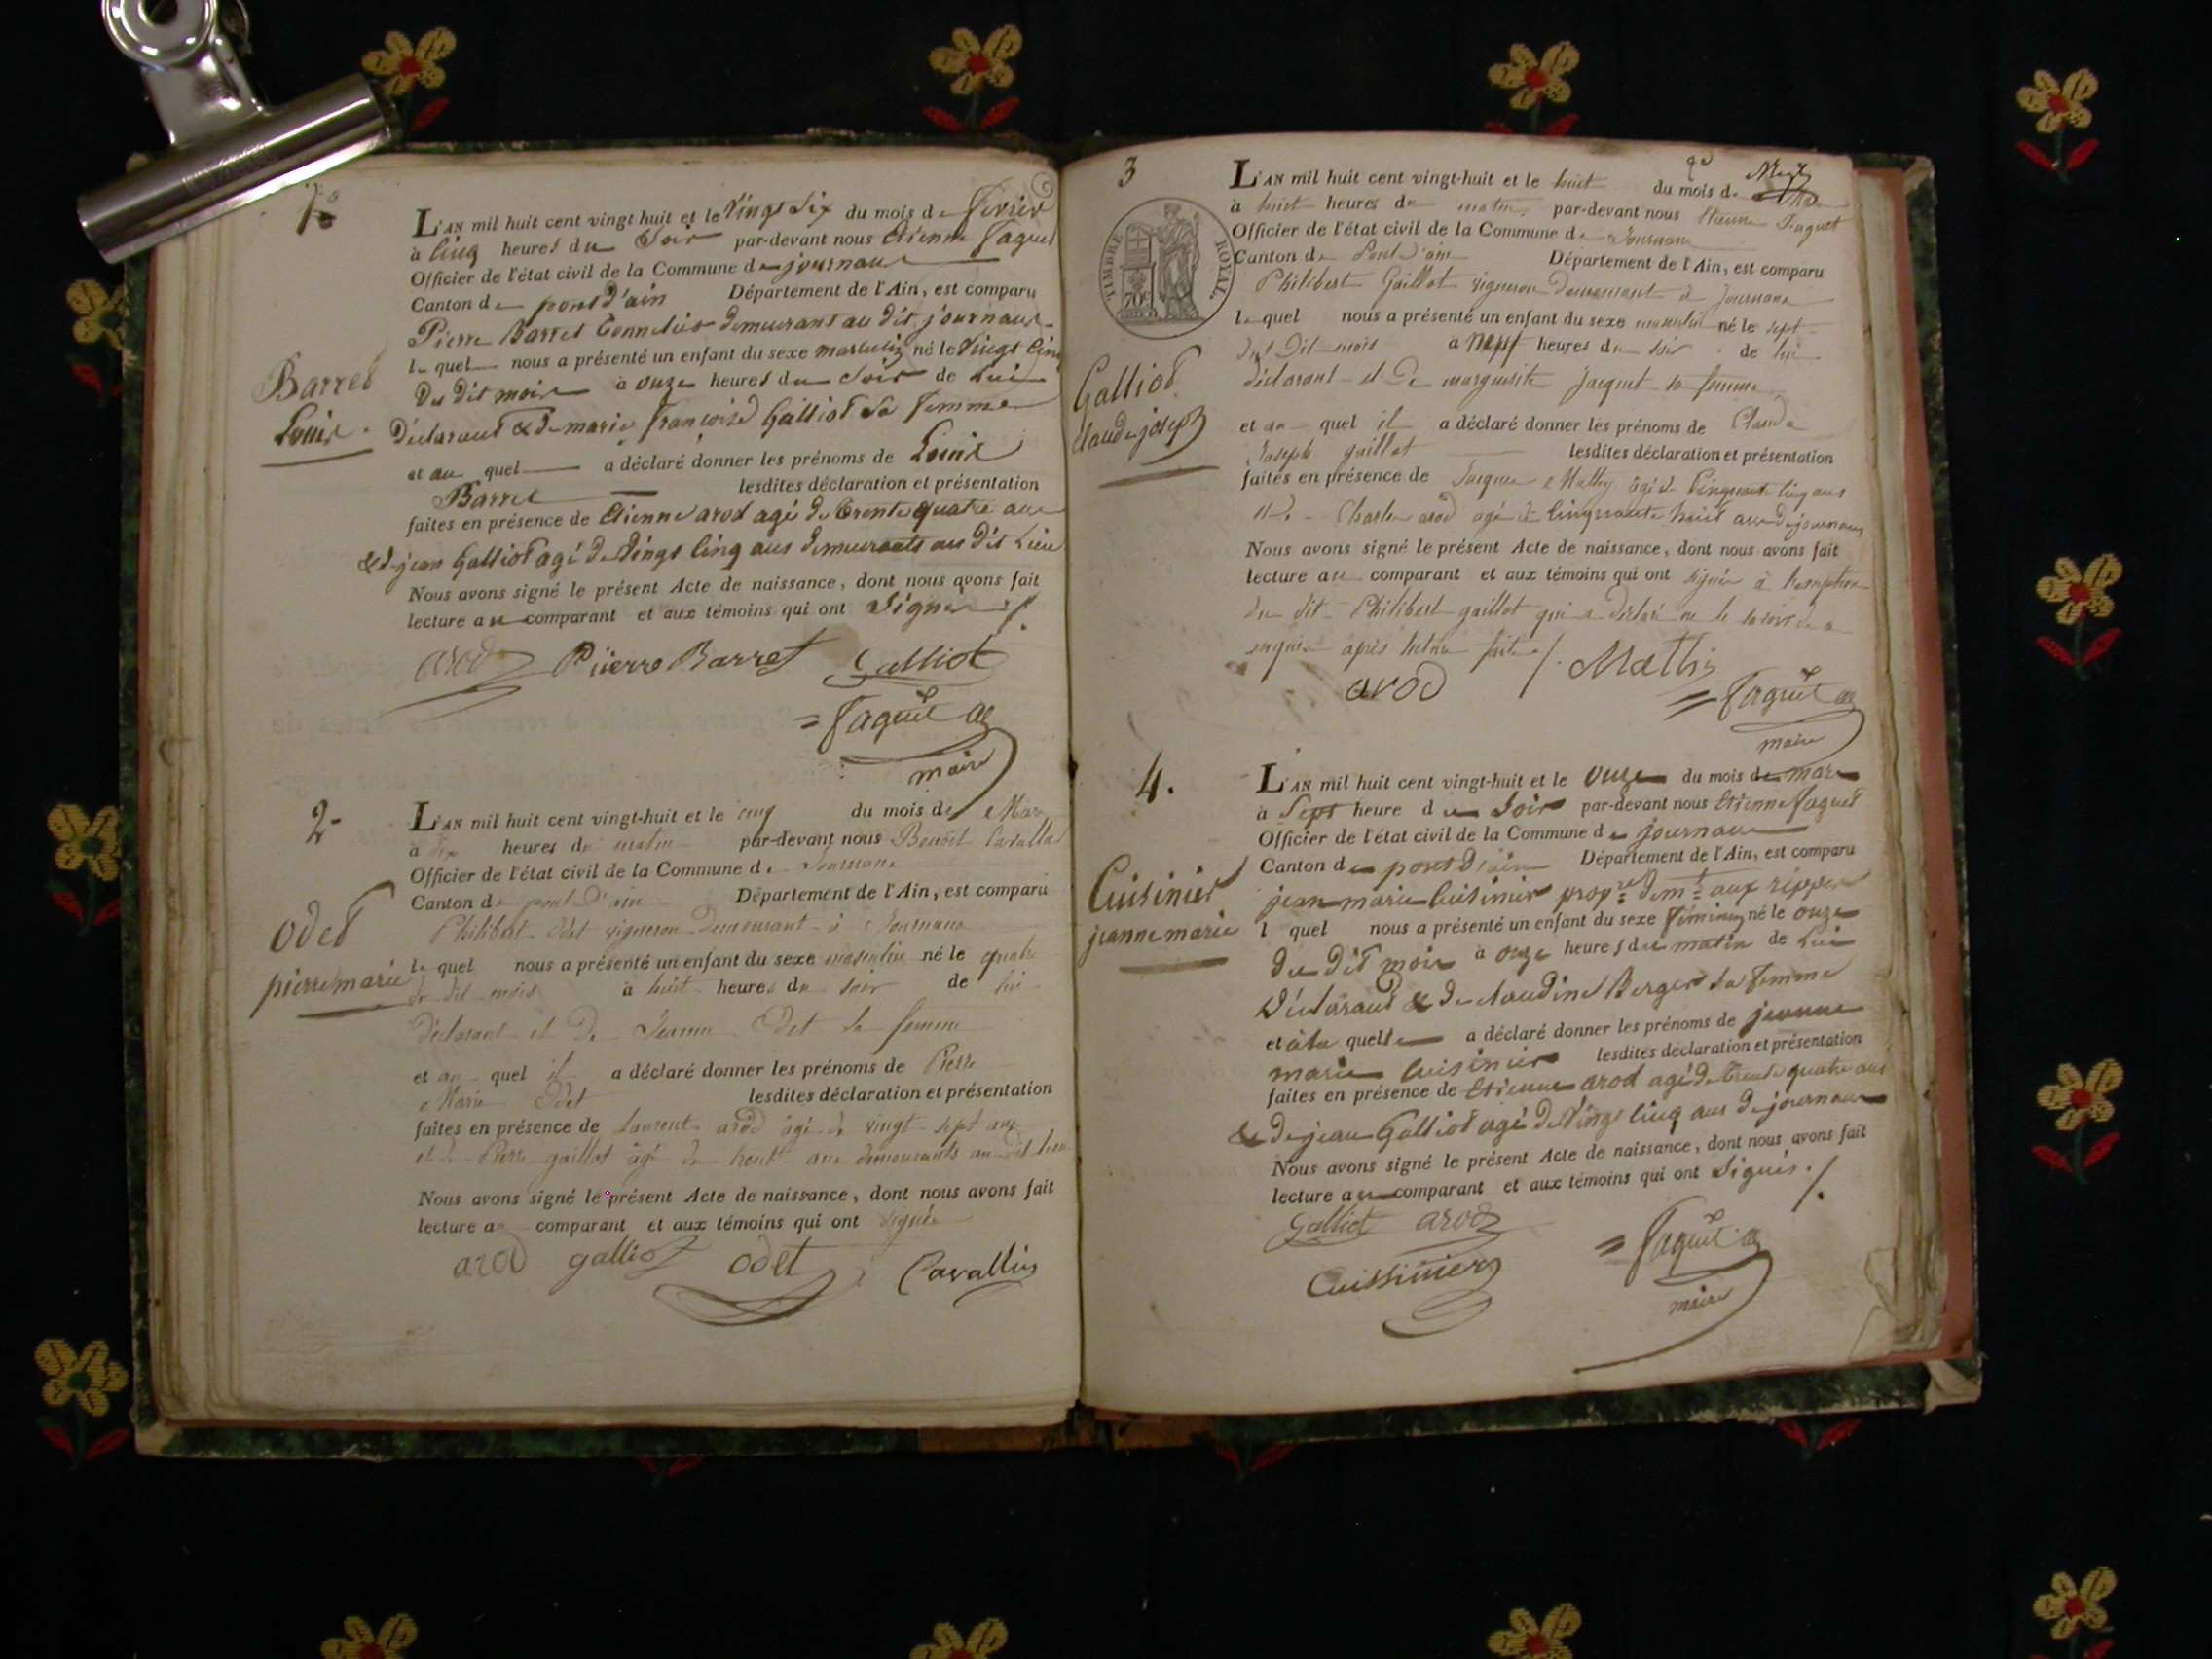 1e
L'AN mil huit cent vingt huit et le Vingt Six du mois de fevrier
à Cinq heures du Soir par-devant nous Etienne faguet
Officier de l'état civil de la Commune de journans
Canton de pont d'ain Département de l'Ain, est comparu
Pierre Barret Tonnelier demeurant au dit journans
le quel nous a présenté un enfant du sexe masculin né le Vingt Cinq
Du dit mois à onze heures du Soir de Lui
Barret
Louis
Déclarant & de marie françoise Galliot Sa femme
et au quel a déclaré donner les prénoms de Louis
Barret lesdites déclaration et présentation
faites en présence de Etienne arod agé de trente quatre ans
& de jean Galliot agé de Vingt Cinq ans demeurants au dit Lieu
Nous avons signé le présent Acte de naissance, dont nous avons fait
lecture au comparant et aux témoins qui ont Signés
arod Piierre Barret Galliot
faguet
maire
2
L'AN mil huit cent vingt-huit et le cinq du mois de Mars
à dix heures du matin par-devant nous Benoit
Officier de l'état civil de la Commune de Journans
Canton de pont d'ain Département de l'Ain, est comparu
Philibert Odet vigneron demeurant à Journans
odet
pierre marie
le quel nous a présenté un enfant du sexe masculin né le quatre
du dit mois à huit heures du soir de lui
déclarant et de Jeanne Odet sa femme
et au quel il a déclaré donner les prénoms de Pierre
Marie Odet lesdites déclaration et présentation
faites en présence de Laurent arod âgé de vingt sept ans
et de Pierre gaillot âgé de trente ans demeurants au dit lieu
Nous avons signé le présent Acte de naissance, dont nous avons fait
lecture au comparant et aux témoins qui ont signés
arod galliot odet Cavallin
3
L'AN mil huit cent vingt-huit et le huit du mois de
à huit heures du matin par-devant nous Etienne Faguet
Officier de l'état civil de la Commune de Journans
Canton de Pont d'ain Département de l'Ain, est comparu
TIMBRE ROYAL
70c
Philibert Gaillot vigneron demeurant à Journans
le quel nous a présenté un enfant du sexe masculin né le sept
du dit mois à neuf heures du soir de lui
Galliot
claude joseph
déclarant et de marguerite Jacquet sa femme
et au quel il a déclaré donner les prénoms de Claude
Joseph gaillot lesdites déclaration et présentation
faites en présence de Jacques Mathy âgé de Cinquante Cinq ans
et de Charles arod agé de Cinquante huit ans de journans
Nous avons signé le présent Acte de naissance, dont nous avons fait
lecture au comparant et aux témoins qui ont signés à l'exeption
du dit Philibert gaillot qui a déclaré ne le savoir de ce
enquis après lecture faite
arod Mathy
faguet
maire
4.
L'AN mil huit cent vingt-huit et le onze du mois de mars
à Sept heure du Soir par-devant nous Etienne faguet
Officier de l'état civil de la Commune de journans
Canton de pont D'ain Département de l'Ain, est comparu
jean marie Cuisinier propre demt aux rippes
Cuisinier
jeanne marie
l quel nous a présenté un enfant du sexe féminin né le onze
du dit mois à onze heures du matin de Lui
Déclarant & de claudine Berger Sa femme
et à la quelle a déclaré donner les prénoms de jeanne
marie Cuisinier lesdites déclaration et présentation
faites en présence de Etienne arod agé de trente quatre ans
& de jean Galliot agé de Vingt Cinq ans de journans
Nous avons signé le présent Acte de naissance, dont nous avons fait
lecture au comparant et aux témoins qui ont Signés.
Galliot arod
faguet
Cuissinier
maire